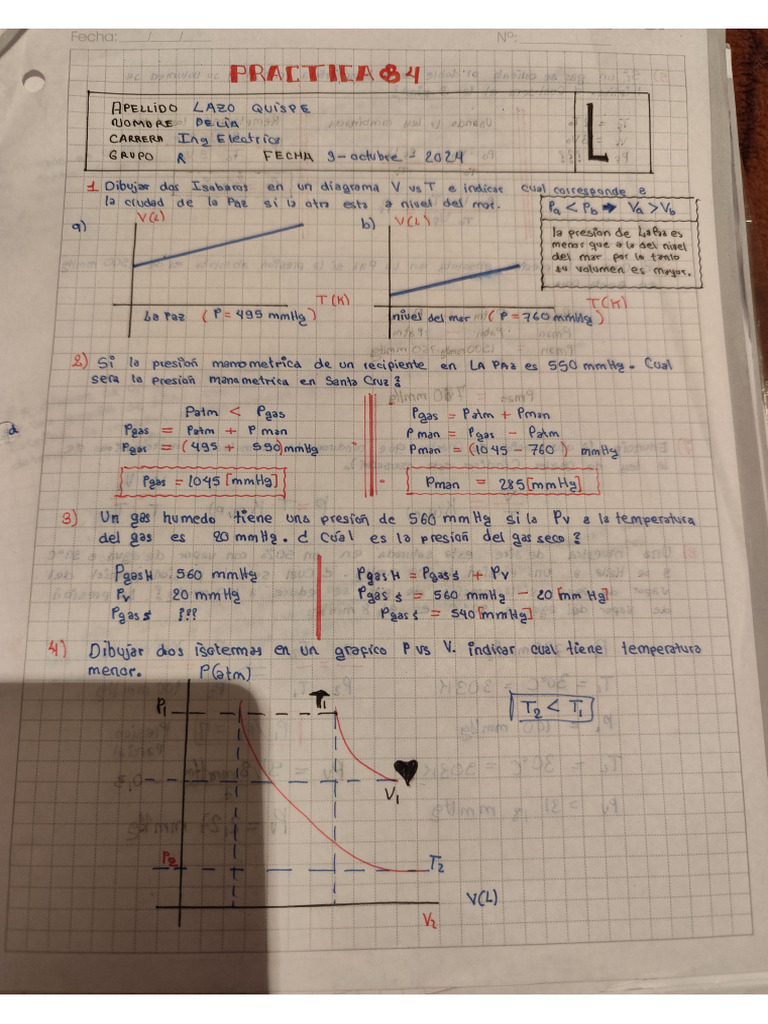 Fecha: ___/___/___
Nº:
PRACTICA 4
APELLIDO LAZO QUISPE
NOMBRE DELIA
CARRERA Ing Electrica
GRUPO R FECHA 9-octubre-2024
L
1. Dibujar dos Isobaras en un diagrama V vs T e indicar cual corresponde a
la ciudad de la Paz si la otra esta a nivel del mar.
Pa < Pb → Va > Vb
la presion de La Paz es
menor que a la del nivel
del mar por lo tanto
su volumen es mayor.
a) V(L)
T(K)
La Paz (P = 495 mmHg)
b) V(L)
T(K)
nivel del mar (P = 760 mmHg)
2) Si la presion manometrica de un recipiente en LA PAZ es 550 mmHg. Cual
sera la presion manametrica en Santa Cruz?
Patm < Pgas
Pgas = Patm + Pman
Pgas = (495 + 550) mmHg
Pgas = 1045 [mmHg]
Pgas = Patm + Pman
Pman = Pgas - Patm
Pman = (1045 - 760) mmHg
Pman = 285 [mmHg]
3) Un gas humedo tiene una presion de 560 mmHg si la Pv a la temperatura
del gas es 20 mmHg. d Cual es la presion del gas seco?
PgasH 560 mmHg
Pv 20 mmHg
Pgas s ???
Pgas H = Pgas s + Pv
Pgas s = 560 mmHg - 20 [mm Hg]
Pgas s = 540 [mmHg]
4) Dibujar dos isotermas en un grafico P vs V. indicar cual tiene temperatura
menor.
P(atm)
P1
T1
T2 < T1
V1
P2
T2
V(L)
V2